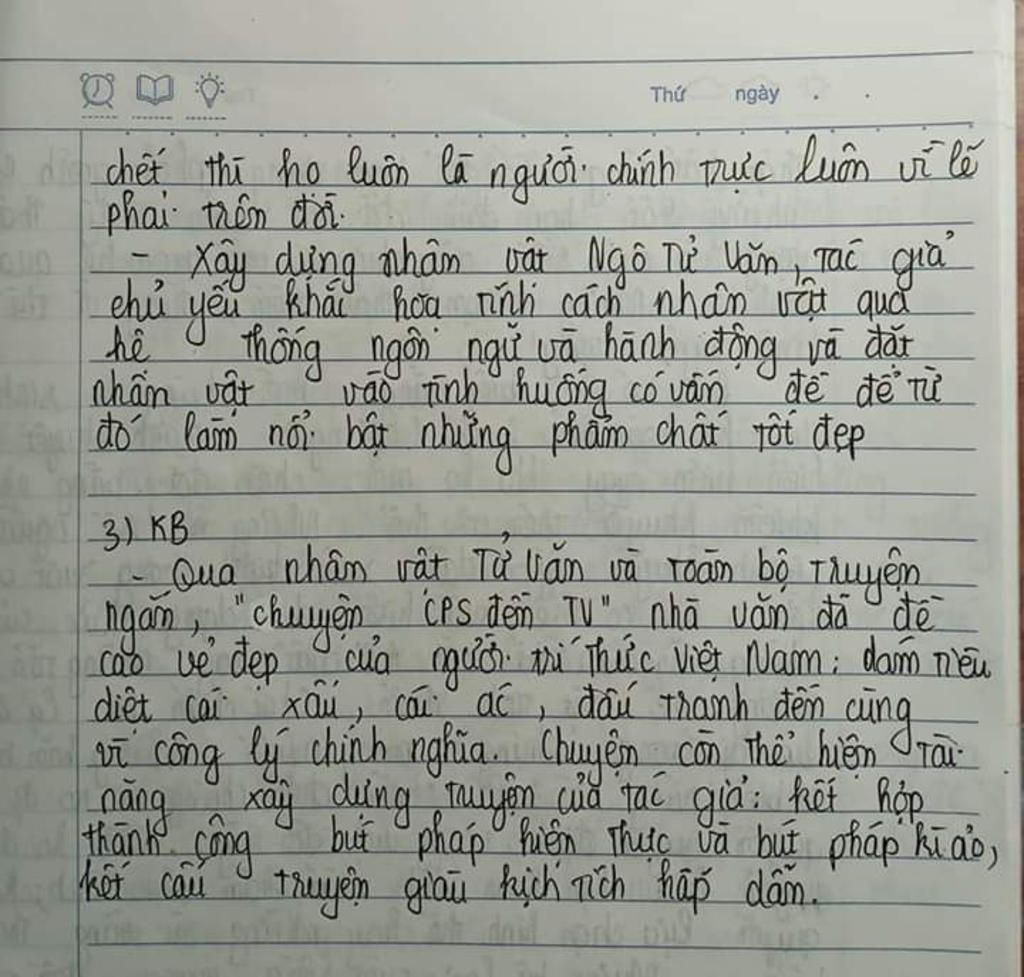 Thứ ngày . .
chết thì họ luôn là người chính trực luôn vì lẽ
phải trên đời.
- Xây dựng nhân vật Ngô Tử Văn, tác giả
chủ yếu khắc họa tính cách nhân vật qua
hệ thống ngôn ngữ và hành động và đặt
nhân vật vào tình huống có vấn đề để từ
đó làm nổi bật những phẩm chất tốt đẹp
3) KB
- Qua nhân vật Tử Văn và toàn bộ truyện
ngắn, "chuyện CPS đền TV" nhà văn đã đề
cao vẻ đẹp của người tri thức Việt Nam: dám tiêu
diệt cái xấu, cái ác, đấu tranh đến cùng
vì công lý chính nghĩa. Chuyện còn thể hiện tài
năng xây dựng truyện của tác giả: kết hợp
thành công bút pháp hiện thực và bút pháp kì ảo,
kết cấu truyện giàu kịch tích hấp dẫn.